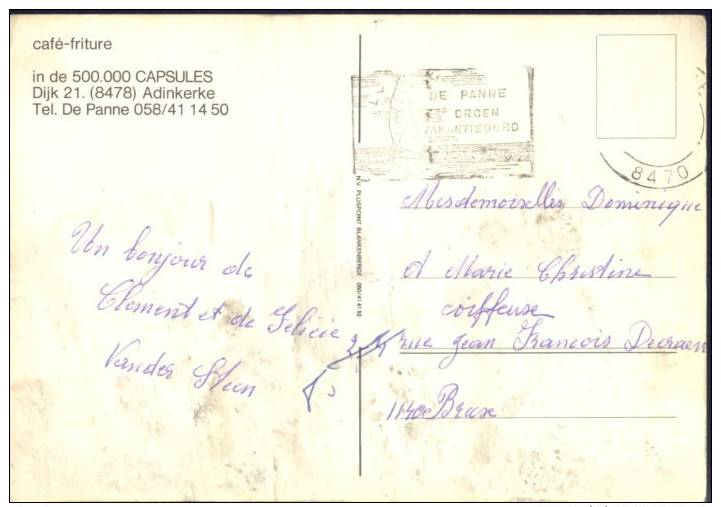 café-friture
in de 500.000 CAPSULES
Dijk 21. (8478) Adinkerke
Tel. De Panne 058/41 14 50
DE PANNE
GROEN
VAKANTIEOORD
8470
N.V. PLUSPOINT BLANKENBERGE 050/41 41 92
Un bonjour de
Clement et de Felicie
Vander Steen
Mesdemoiselles Dominique
et Marie Christine
coiffeuse
rue Jean Francois